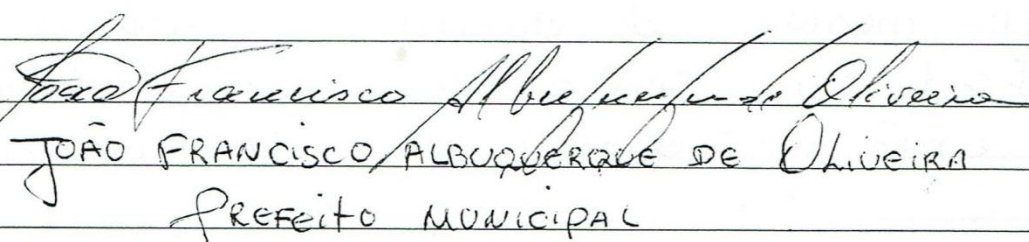 João Francisco Albuquerque de Oliveira
JOÃO FRANCISCO ALBUQUERQUE DE OLIVEIRA
PREFEITO MUNICIPAL